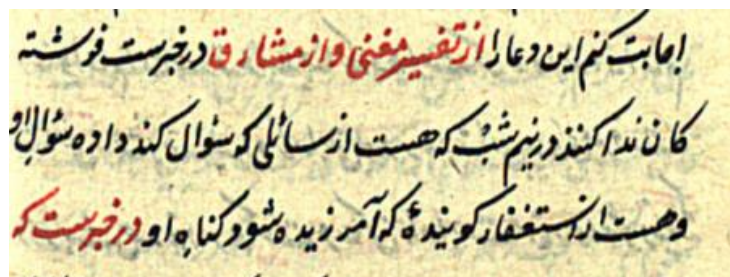 اجابت کنم این دعا را از تفسیر مغنی و از مشارق در خبرست فرشته
کان ندا کنند در نیم شب که هست از سائلی که سئوال کند داده سئوال او
و هست از استغفار کوینده که آمرزیده شود کناه او در خبرست که